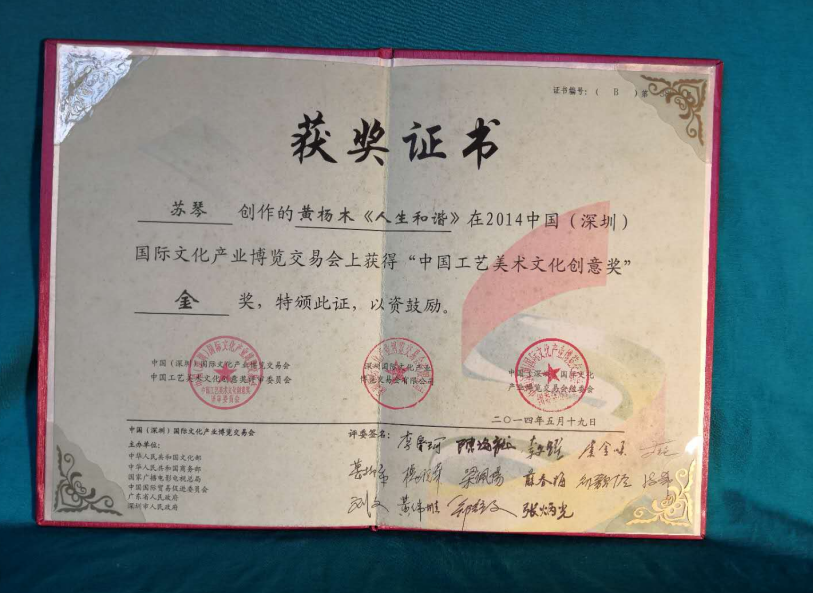 证书编号：（ B ）第
获奖证书
苏琴 创作的黄杨木《人生和谐》在2014中国（深圳）
国际文化产业博览交易会上获得“中国工艺美术文化创意奖”
金 奖，特颁此证，以资鼓励。
中国（深圳）国际文化产业博览交易会
中国工艺美术文化创意奖评审委员会
深圳国际文化产业
博览交易会有限公司
中国（深圳）国际文化
产业博览交易会组委会
二〇一四年五月十九日
中国（深圳）国际文化产业博览交易会
主办单位：
中华人民共和国文化部
中华人民共和国商务部
国家广播电影电视总局
中国国际贸易促进委员会
广东省人民政府
深圳市人民政府
评委签名：
张炳光